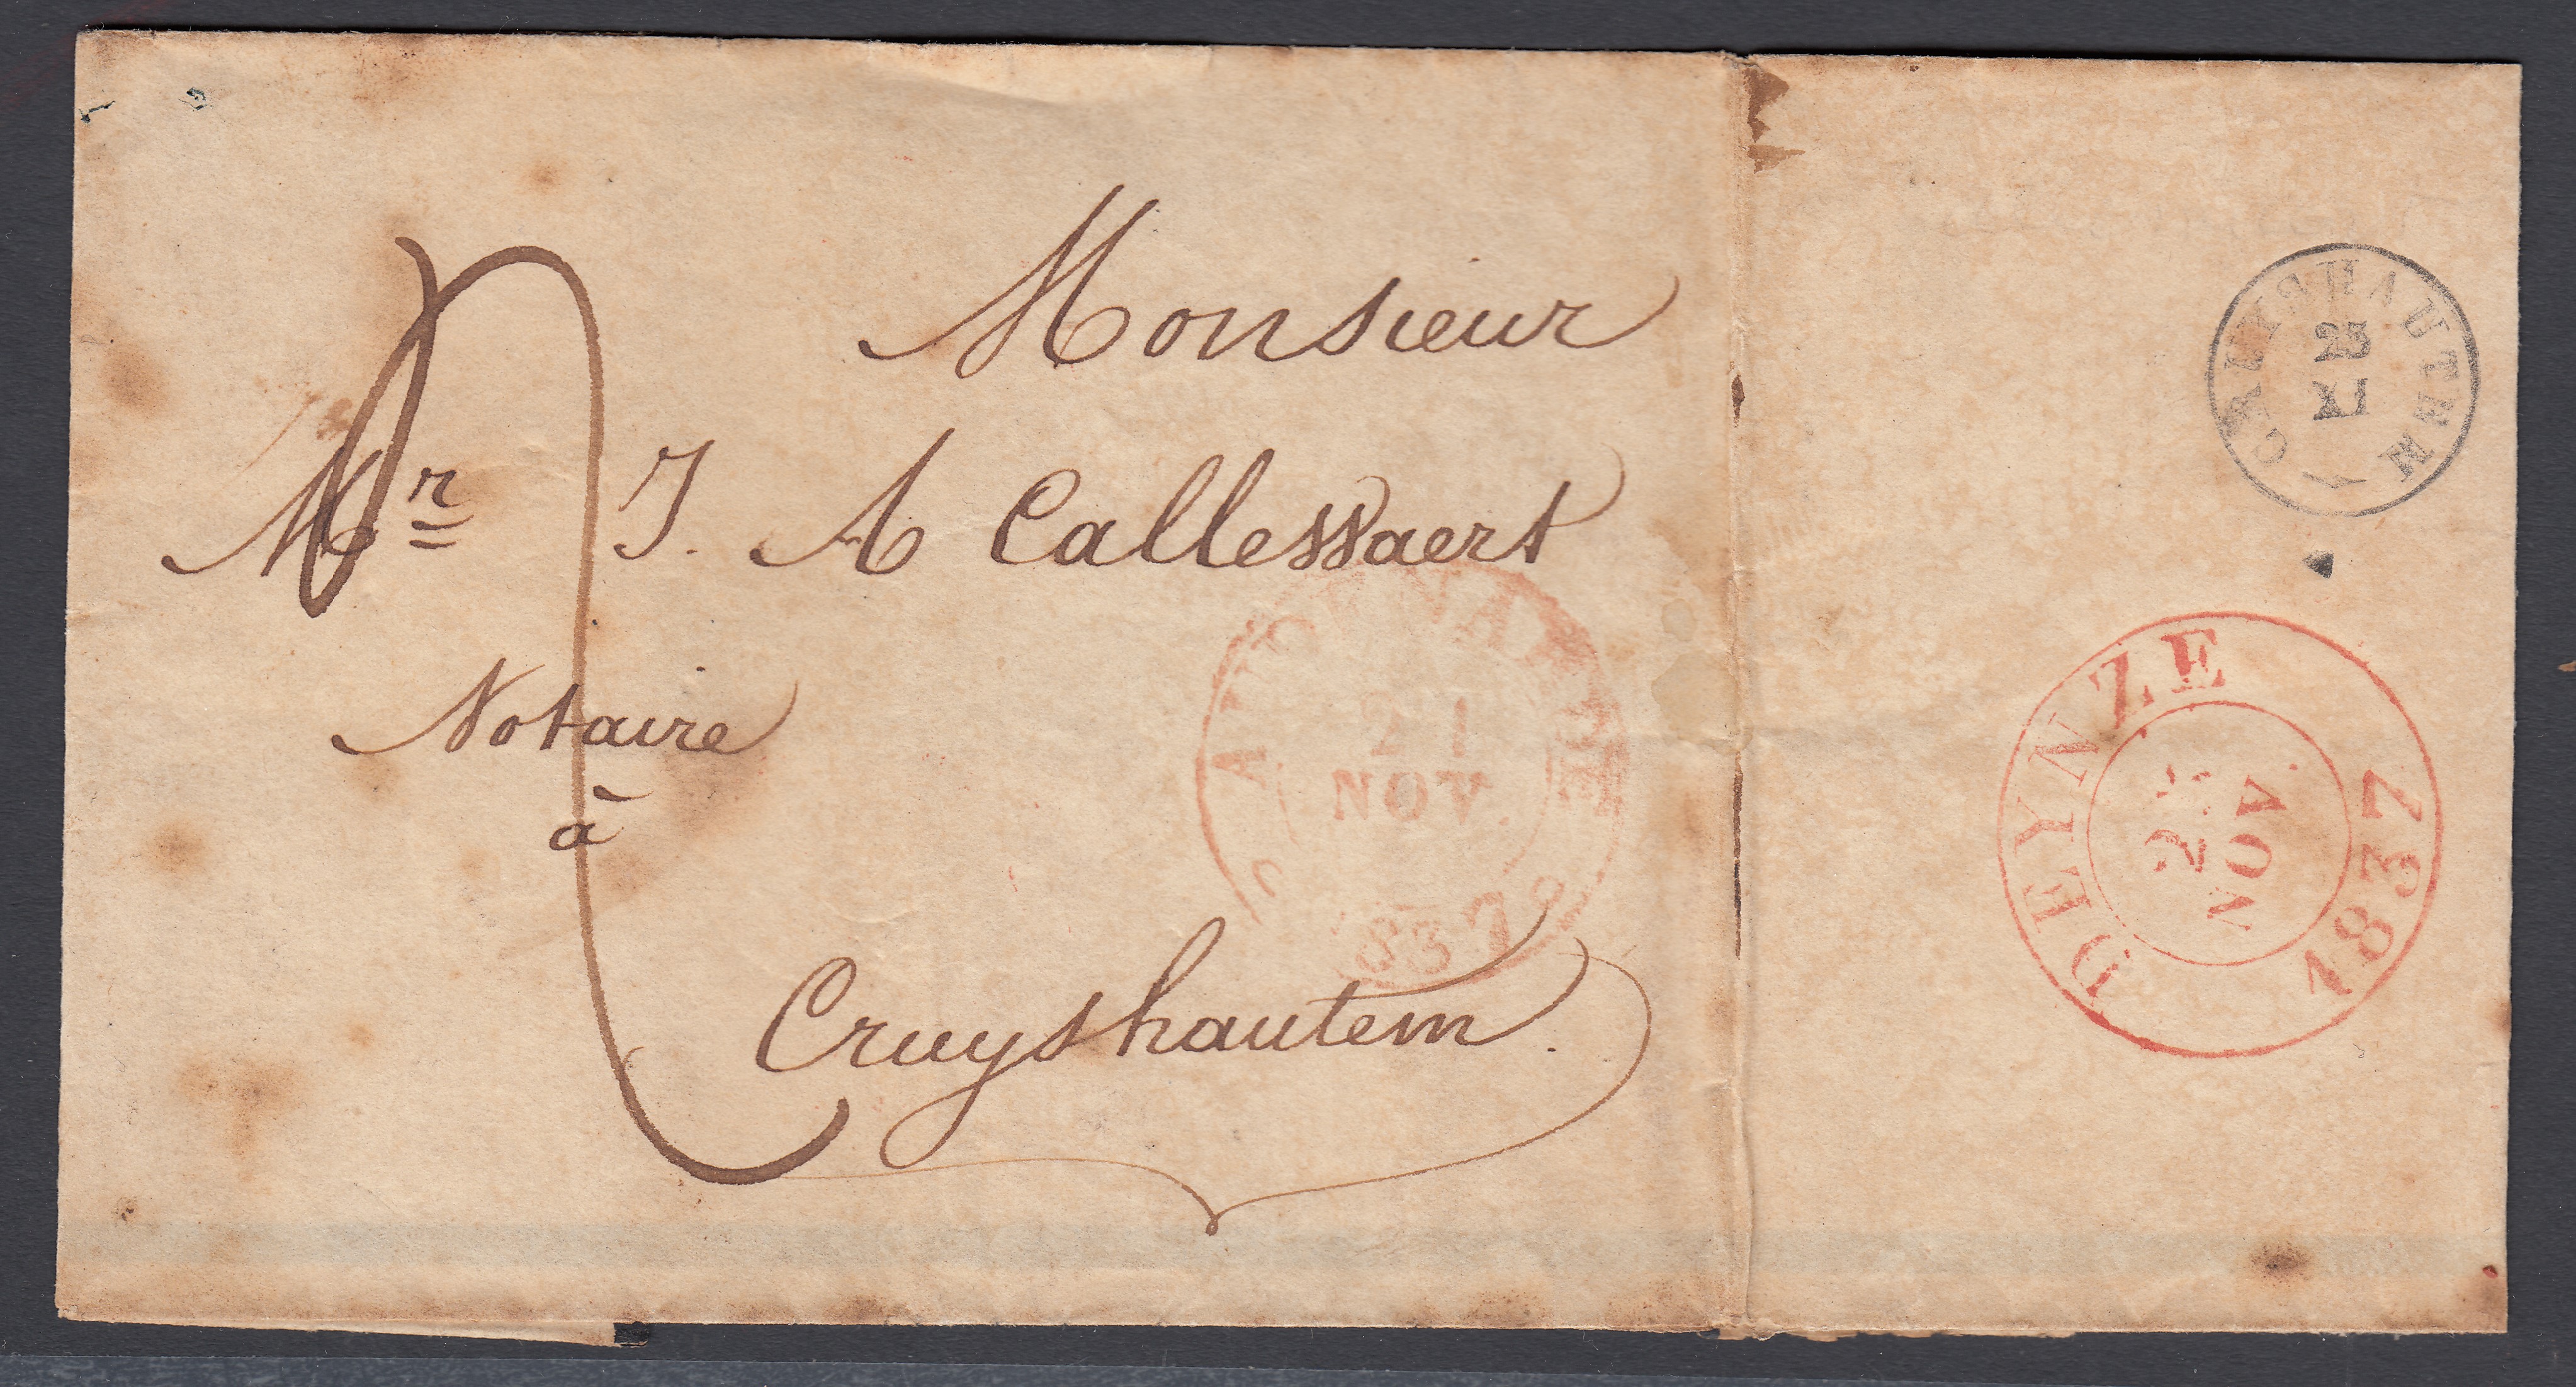 Monsieur
Mr J. A Callessaert
Notaire
à
Cruyshautem.
AUDENAERDE
21
NOV.
1837
CRUYSHAUTEM
23
XI
DEYNZE
NOV.
1837